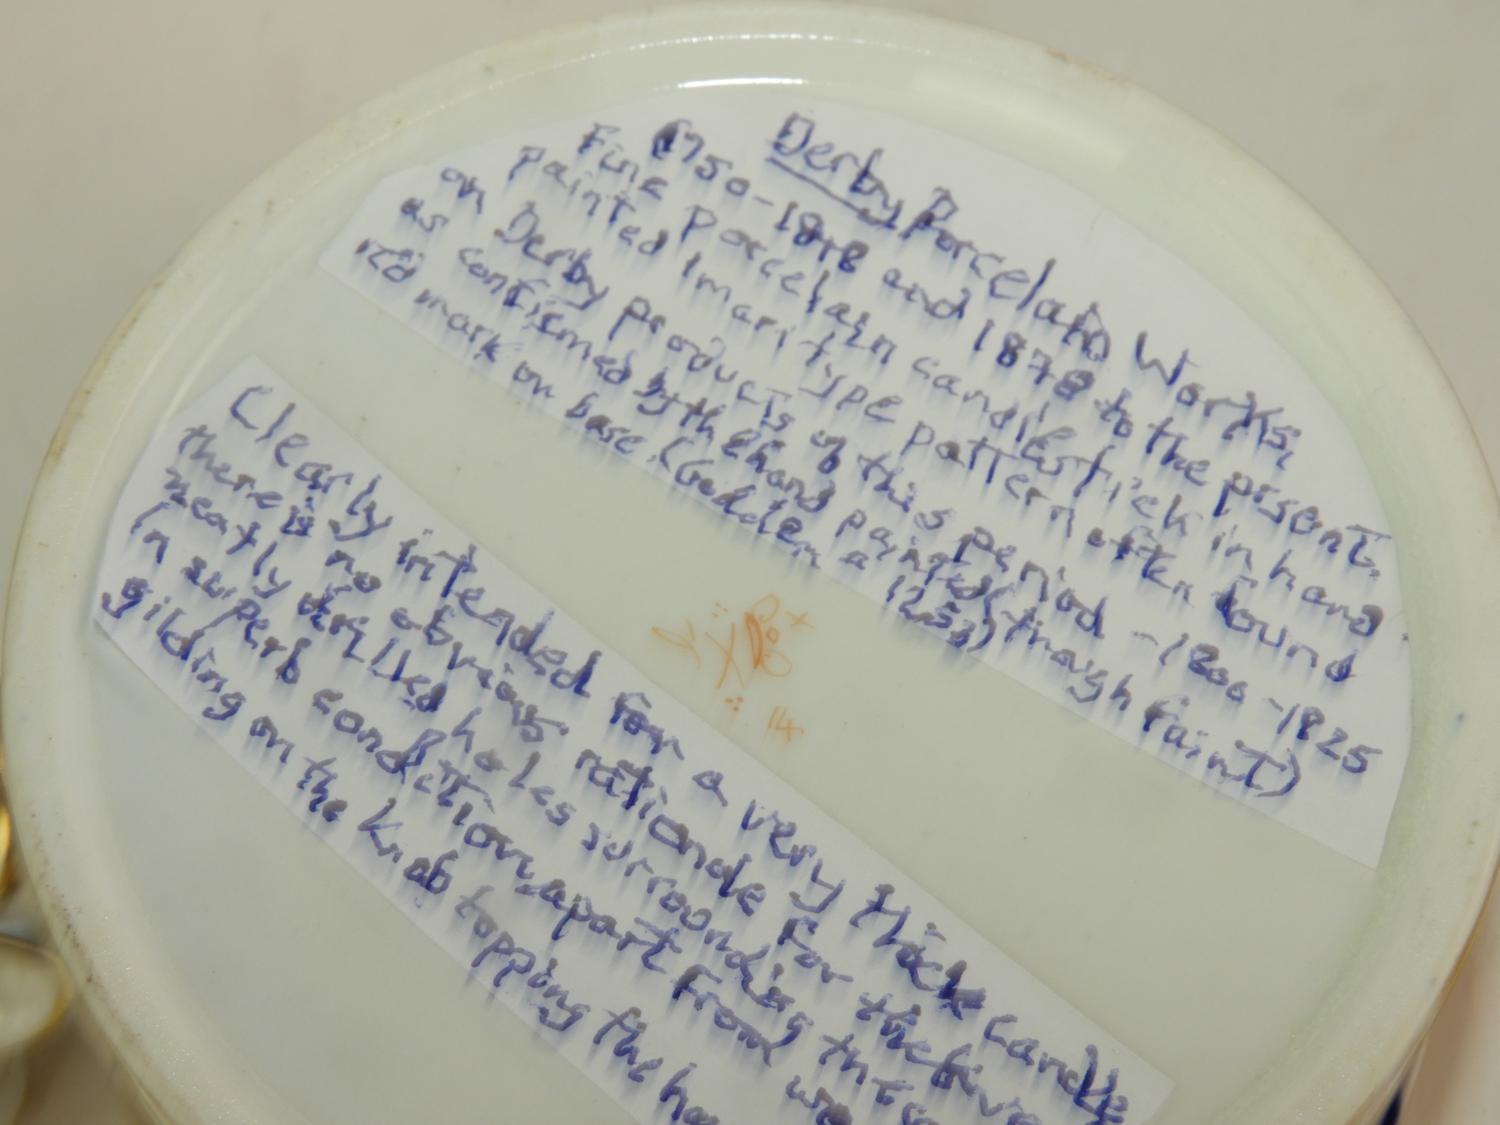 Derby Porcelain Works,
1750-1848 and 1878 to the prsent.
Fine Porcelain candlestick in hand
painted Imari type pattern often found
on Derby products of this period - 1800-1825
as confirmed by the hand painted (though faint)
red mark on base. (Godden a 1253)
14
Clearly intended for a very thick candle
there is no obvious rationale for the five
neatly drilled holes surrounding the
In superb condition, apart from
gilding on the knob topping the